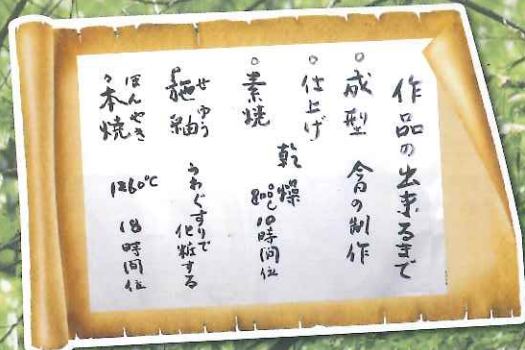 作品の出来るまで
○成型 今の制作
○仕上げ
乾燥
○素焼 800℃ 10時間位
○施釉 せゆう うわぐすりで化粧する
○本焼 ほんやき 1260℃ 18時間位